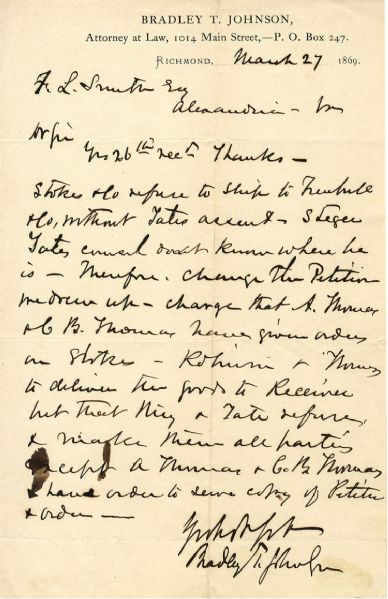 BRADLEY T. JOHNSON,
Attorney at Law, 1014 Main Street,—P. O. Box 247.
RICHMOND, March 27 1869.
F. L. Smith Esq
Alexandria – Va
Dr Sir
Yrs 26th recd. Thanks –
Stokes & Co refuse to ship to
& Co, without Tates assent –
Tates counsel dont know where he
is – Therefore. change the Petition
we drew up – charge that A. Thomas
& C. B. Thomas have given orders
on Stokes – Robinson & Thomas
to deliver the goods to Receiver
but that they & Tate refuse,
& make them all parties
Except A Thomas & C. B. Thomas
& have order to serve copy of Petition
& order —
Bradley T. Johnson